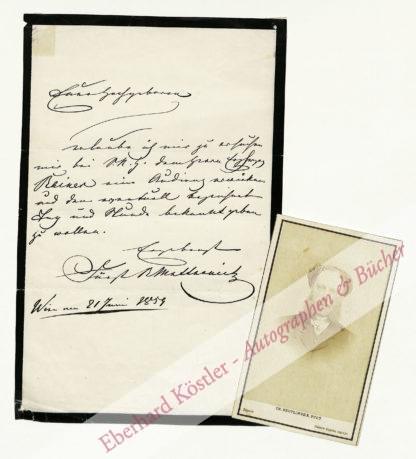 Euer Hochgeboren
erlaube ich mir zu ersuchen
mir bei S.K.H. dem Herrn Erzherzog
Rainer eine Audienz erwirken
und den eventuell
Tag und Stunde bekannt geben
zu wollen.
Ergebenst
Fürst R Metternich
Wien am 21 Juni 1859
CH. REUTLINGER PHOT.
Eberhard Köstler - Autographen & Bücher